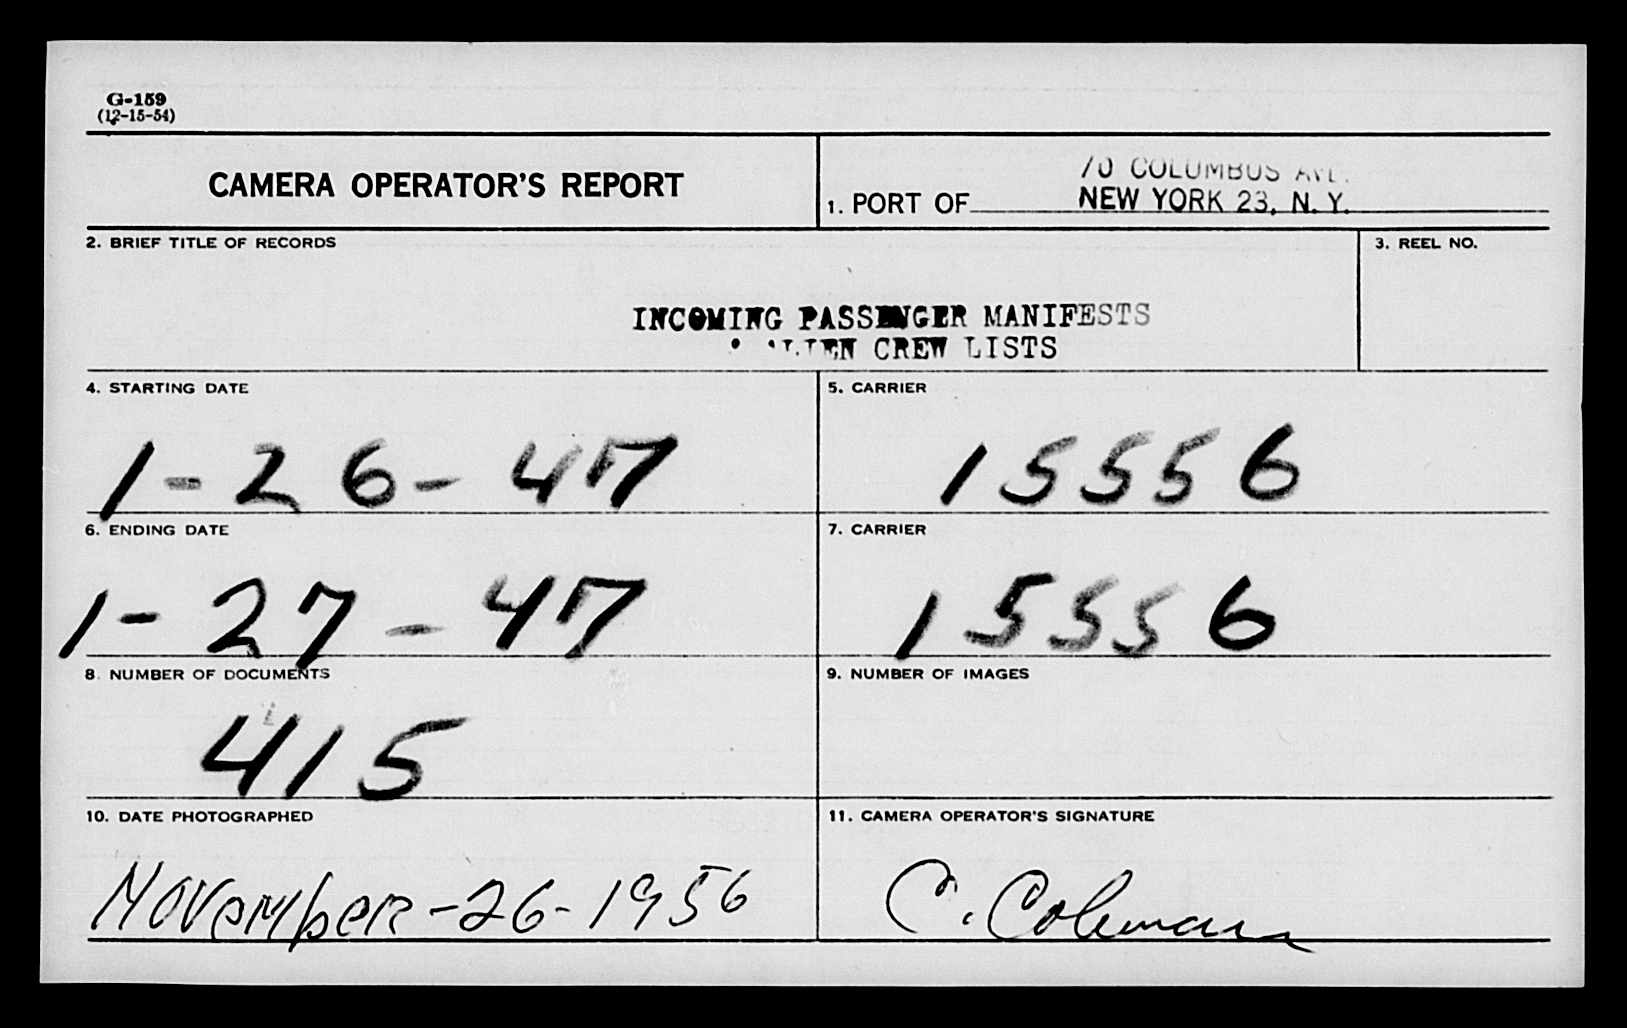 G-159
(12-15-54)
CAMERA OPERATOR'S REPORT
70 COLUMBUS AVE.
1. PORT OF NEW YORK 23, N.Y.
2. BRIEF TITLE OF RECORDS
3. REEL NO.
INCOMING PASSENGER MANIFESTS
ALIEN CREW LISTS
4. STARTING DATE
5. CARRIER
1-26-47
15556
6. ENDING DATE
7. CARRIER
1-27-47
15556
8. NUMBER OF DOCUMENTS
9. NUMBER OF IMAGES
415
10. DATE PHOTOGRAPHED
11. CAMERA OPERATOR'S SIGNATURE
November-26-1956
C. Coleman